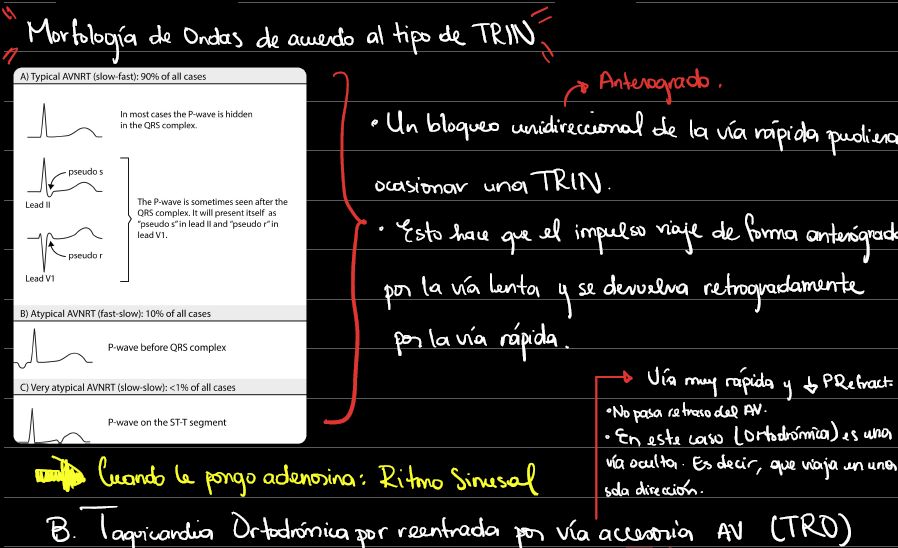 Morfología de Ondas de acuerdo al tipo de TRIN
A) Typical AVNRT (slow-fast): 90% of all cases
In most cases the P-wave is hidden
in the QRS complex.
pseudo s
Lead II
The P-wave is sometimes seen after the
QRS complex. It will present itself as
"pseudo s" in lead II and "pseudo r" in
lead V1.
pseudo r
Lead V1
B) Atypical AVNRT (fast-slow): 10% of all cases
P-wave before QRS complex
C) Very atypical AVNRT (slow-slow): <1% of all cases
P-wave on the ST-T segment
Anterogrado.
• Un bloqueo unidireccional de la vía rápida pudiera
ocasionar una TRIN.
• Esto hace que el impulso viaje de forma anterógrad
por la vía lenta y se devuelva retrogradamente
por la vía rápida.
Vía muy rápida y ↓ PRefract.
• No pasa retraso del AV.
• En este caso (Ortodrómica) es una
vía oculta. Es decir, que viaja en una
sola dirección.
Cuando le pongo adenosina: Ritmo Sinusal
B. Taquicardia Ortodrómica por reentrada por vía accesoria AV (TRO)